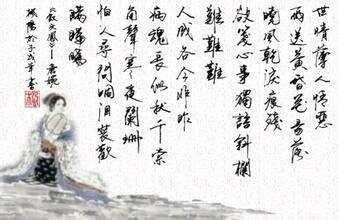 世情薄人情恶
雨送黄昏花易落
晓风乾淚痕殘
欲箋心事獨語斜欄
難難難
人成各今非昨
病魂長似秋千索
角聲寒夜闌珊
怕人尋問咽泪装歡
瞞瞞瞞
《釵头凤》唐琬